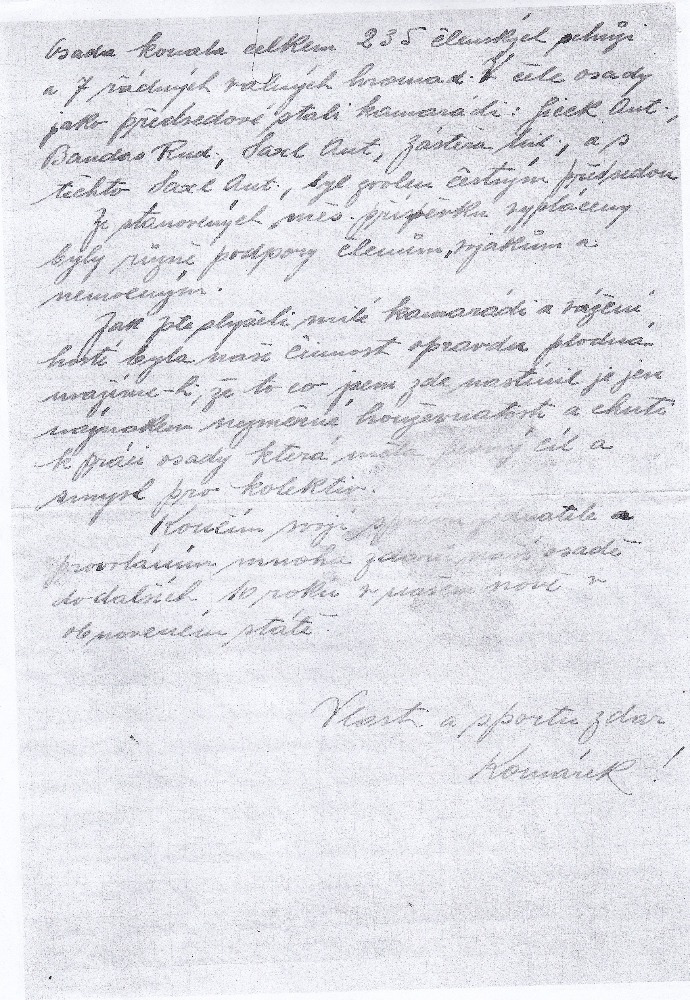 Osada konala celkem 235 členských schůzí
a 7 řádných valných hromad. V čele osady
jako předsedové stáli kamarádi: Ant.,
Baudas Rud., Saxl Ant., Zástěra a z
těchto Saxl Ant., byl zvolen čestným předsedou
Ze stanovených měs. příspěvků vypláceny
byly různé podpory členům, vojákům a
nemocným.
Jak jste slyšeli milí kamarádi a vážení
hosté byla naše činnost opravdu plodná
uvážíme-li, že to co jsem zde nastínil je jen
náznakem nezměrné houževnatosti a chuti
k práci osady která měla pevný cíl a
smysl pro kolektiv.
Končím svoji zprávu jednatele a
provoláním mnoho zdaru naší osadě
do dalších 10 roků v našem nově
obnoveném státě.
Vlasti a sportu zdar
Komárek !